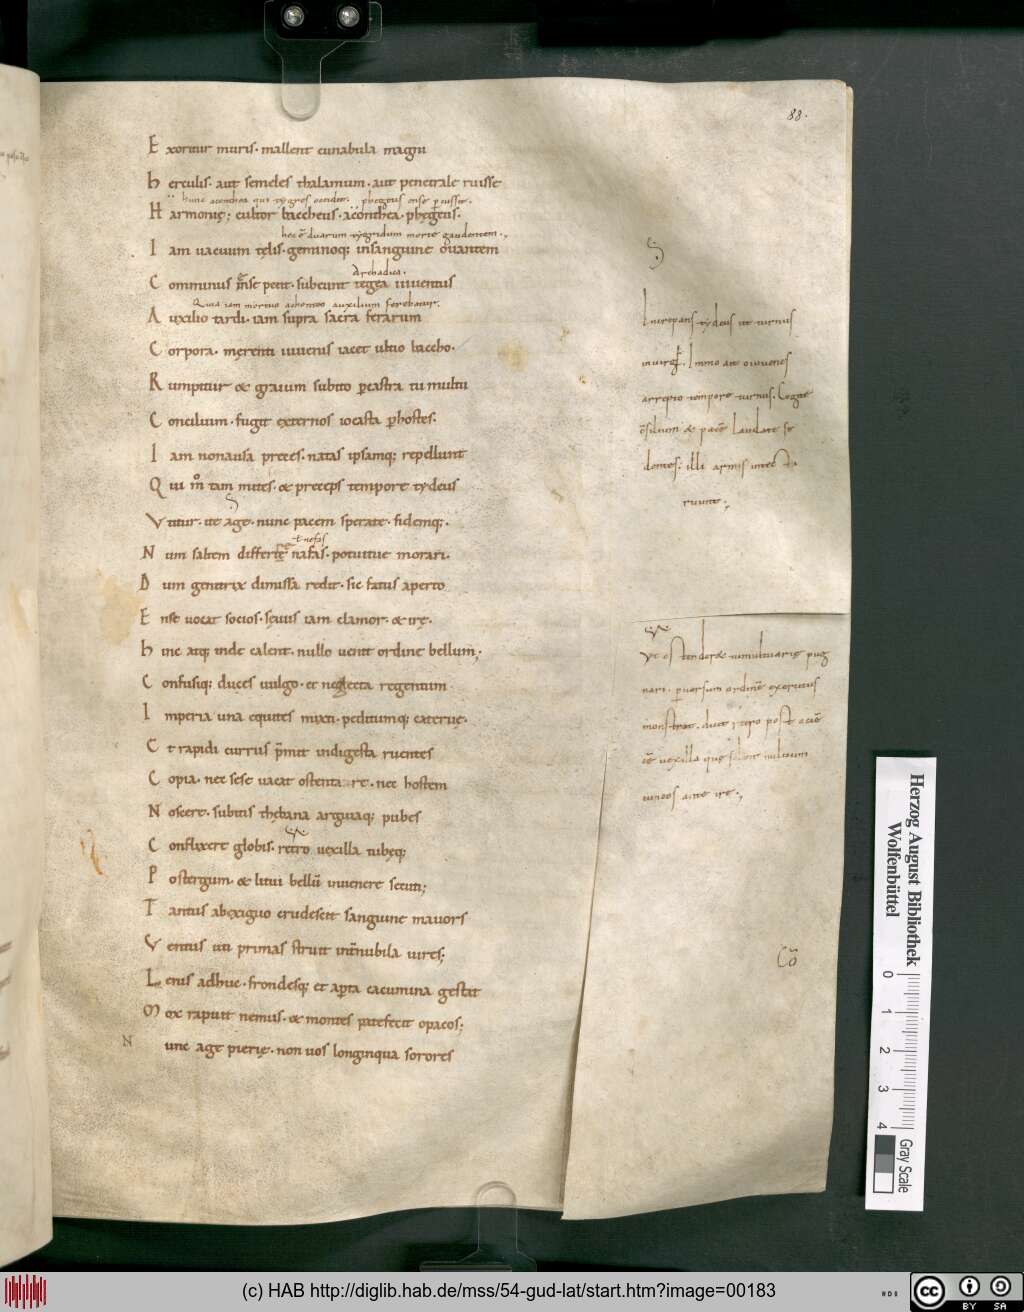 88.
E xoritur muris. mallent cunabula magni
h erculis. aut semeles thalamum. aut penetrale ruisse
hunc aconthea qui tygres occidit. phegeus ense percussit.
H armonię; cultor baccheus. aconthea. phęgeus.
hec ē duarum tygridum morte gaudentem.,
I am uacuum telis. geminoq; insanguine ouantem
C omminus ense petit. subeunt tegea iuuentus
Archadica.
Quia iam mortuo achonteo auxilium ferebatur.
A uxilio tardi. iam supra sacra ferarum
C orpora. merenti iuuenis iacet ultio baccho.
R umpitur & graium subito percastra tumultu
C oncilium. fugit externos iocasta perhostes.
I am nonausa preces. natas ipsamq; repellunt
Q ui m̊ tam mites. & preceps tempore tydeus
V titur. ite age. nunc pacem sperate. fidemq;.
ł nefas
N um saltem differre nafas. potuitue morari.
D um genitrix dimissa redit. sic fatus aperto
E nse uocat socios. sęuus iam clamor. & irę.
h inc atq; inde calent. nullo uenit ordine bellum;
C onfusiq; duces uulgo. et neglecta regentum
I mperia una equites mixti. peditumq; cateruę.
E t rapidi currus p̄mit indigesta ruentes
C opia. nec sese uacat ostentare. nec hostem
N oscere. subitis thebana argiuaq; pubes
C onflixere globis. retro uexilla tubęq;
P ostergum. & litui bellū inuenere secuti;
T antus abexiguo crudescit sanguine mauors
V entus uti primas struit int̄nubila uires;
L enis adhuc. frondesq; et aperta cacumina gestat
M ox rapuit nemus. & montes patefecit opacos;
N unc age pierię. non uos longinqua sorores
arrepto tempore turnus. Cogite
cōsilium & pacē laudate se
dentes; illi armis
ruunt.,
Vt ostenderet tumultuarie pug
nari. peruersum ordinē exercitus
monstrat. dicit retro post aciē
cuneos ante ire.,
Cō
Herzog August Bibliothek
Wolfenbüttel
0 1 2 3 4
Gray Scale
(c) HAB http://diglib.hab.de/mss/54-gud-lat/start.htm?image=00183
cc BY SA